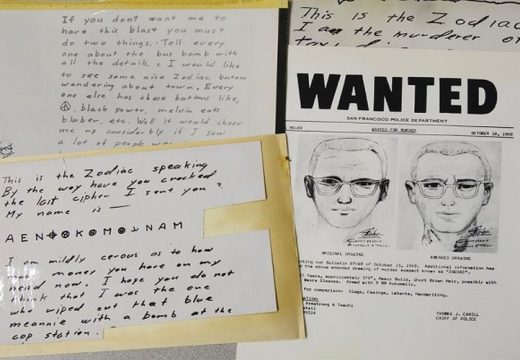 If you dont want me to
have this blast you must
do two things. Tell every
one about the bus bomb with
all the details. I would like
to see some nice Zodiac butons
wandering about town. Every
one else has these buttons like,
black power, melvin eats
blaber, etc. Well it would cheer
me up considerably if I saw
a lot of people
This is the Zodiac speaking
By the way have you cracked
the last cipher I sent you?
My name is —
A E N ⊕ K O M O N A M
I am mildly cerous as to how
much money you have on my
head now. I hope you do not
think that I was the one
who wiped out that blue
meannie with a bomb at the
cop station.
This is the Zodiac
I am the murderer of
WANTED
SAN FRANCISCO POLICE DEPARTMENT
WANTED FOR MURDER
OCTOBER 18, 1969
ORIGINAL DRAWING
AMENDED DRAWING
our Bulletin of October 13, 1969. Additional information has
the above amended drawing of murder suspect known as "ZODIAC".
Years, approximately Build, Short Brown Hair, possibly with
Glasses. Armed with 9 MM Automatic.
For comparison: Slugs, Casings, Latents, Handwriting.
Armstrong & Toschi
THOMAS J. CAHILL
CHIEF OF POLICE